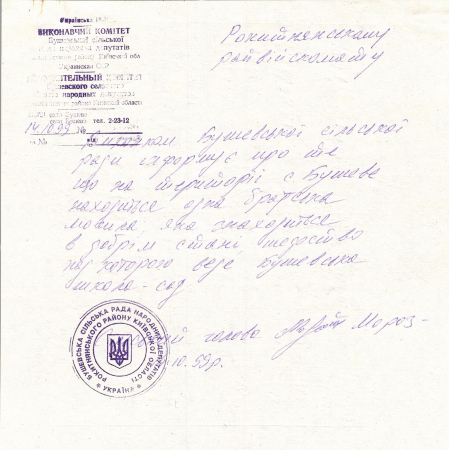 Українська РСР
ВИКОНАВЧИЙ КОМІТЕТ
Бушевської сільської
депутатів
району Київської обл
Украинская ССР
КОМИТЕТ
Бушевского
народных депутатов
района Киевской области
тел. 2-23-12
14.10.99 № від
Рокитнянському
райвійськомату
Бушевської сільської
ради інформує про те
що на території с Бушеве
находиться одна братська
могила, яка знаходиться
в добрім стані,
над которою веде Бушевська
школа-сад
голова Мороз
10.99р.
БУШЕВСЬКА СІЛЬСЬКА РАДА НАРОДНИХ ДЕПУТАТІВ
РОКИТНЯНСЬКОГО РАЙОНУ КИЇВСЬКОЇ ОБЛАСТІ
* УКРАЇНА *